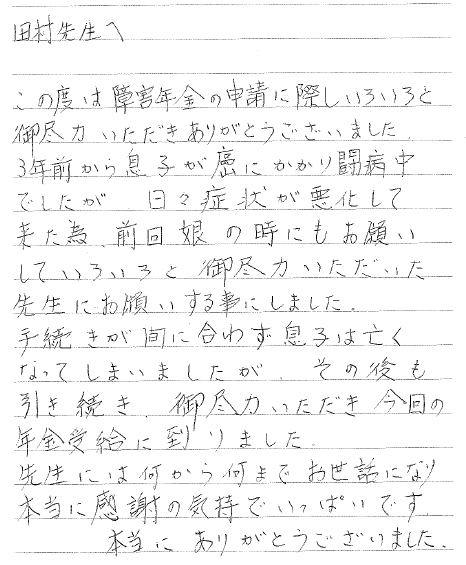 田村先生へ
この度は障害年金の申請に際しいろいろと
御尽力いただきありがとうございました。
3年前から息子が癌にかかり闘病中
でしたが 日々症状が悪化して
来た為、前回娘の時にもお願い
していろいろと御尽力いただいた
先生にお願いする事にしました。
手続きが間に合わず息子は亡く
なってしまいましたが、その後も
引き続き、御尽力いただき今回の
年金受給に到りました。
先生には何から何までお世話になり
本当に感謝の気持でいっぱいです。
本当にありがとうございました。